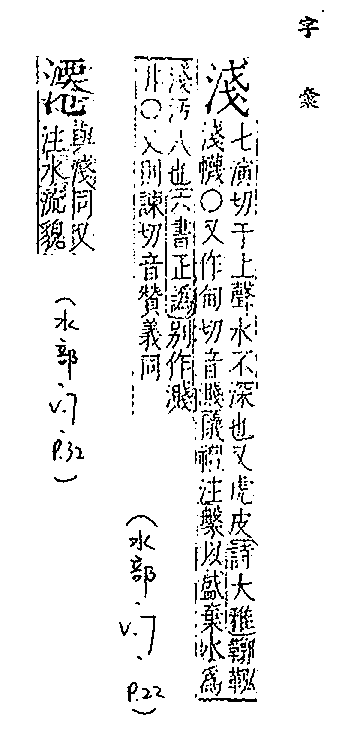 字彙
淺
七演切千上聲水不深也又虎皮詩大雅鞹鞃
淺幭○又作甸切音賤儀禮注槃以盛棄水為
淺汚人也六書正譌別作濺
非○又則諫切音贊義同
(水部 v.7. P.22)
與淺同又
注水流貌
(水部.v.7.P.32)